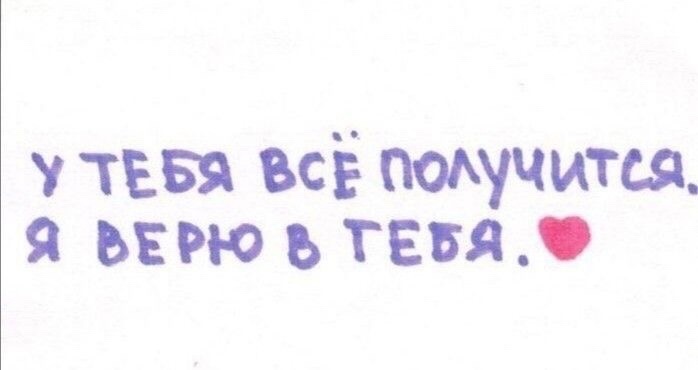 У ТЕБЯ ВСЁ ПОЛУЧИТСЯ.
Я ВЕРЮ В ТЕБЯ.